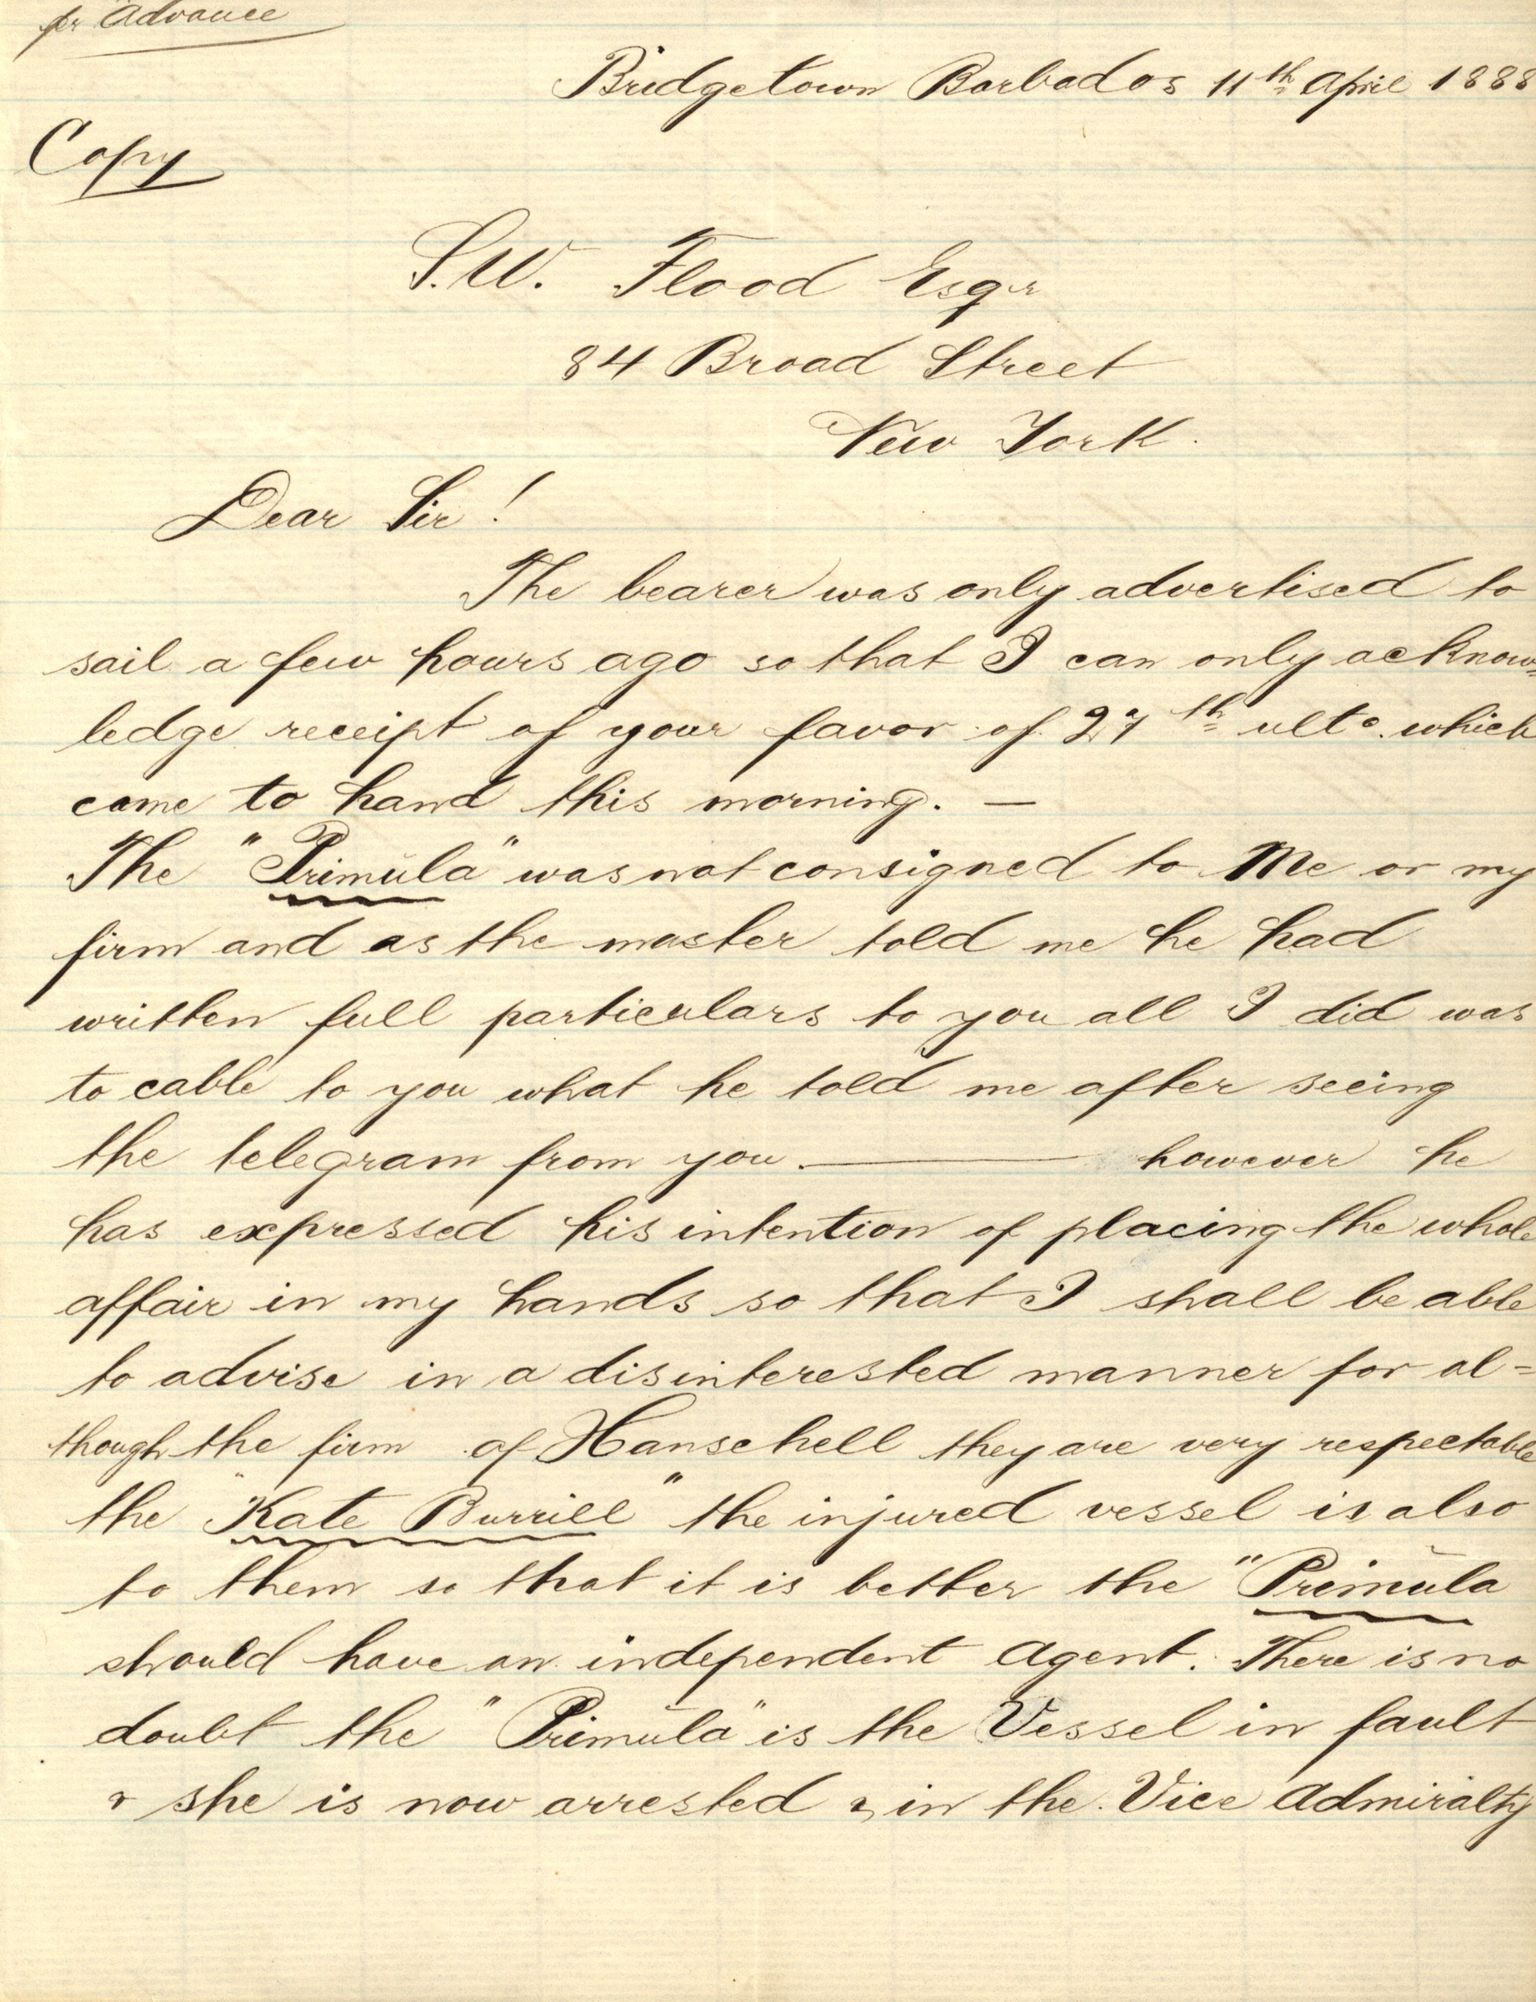 pr Advance
Bridgetown Barbados 11th April 1888
Copy
S.W. Flood Esqr
84 Broad Street
New York.
Dear Sir!
The bearer was only advertised to
sail a few hours ago so that I can only acknow=
ledge receipt of your favor of 27th ulto. which
came to hand this morning. —
The "Primŭla" was not consigned to Me or my
firm and as the master told me he had
written full particulars to you all I did was
to cable to you what he told me after seeing
the telegram from you. — however he
has expressed his intention of placing the whole
affair in my hands so that I shall be able
to advise in a disinterested manner for al=
though the firm of Hanschell they are very respectable
the "Kate Burrill" the injured vessel is also
to them so that it is better the "Primŭla
should have an independent Agent. There is no
doubt the "Primŭla" is the Vessel in fault
& she is now arrested & in the Vice Admiralty